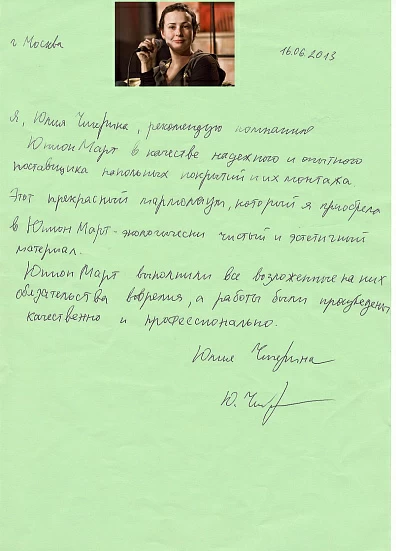 г Москва
16.06.2013
Я, Юлия Чичерина, рекомендую компанию
Юнион Март в качестве надежного и опытного
поставщика напольных покрытий и их монтажа.
Этот прекрасный мармолеум, который я приобрела
в Юнион Март - экологически чистый и эстетичный
материал.
Юнион Март выполнили все возложенные на них
обязательства вовремя, а работы были произведены
качественно и профессионально.
Юлия Чичерина
Ю. Чич